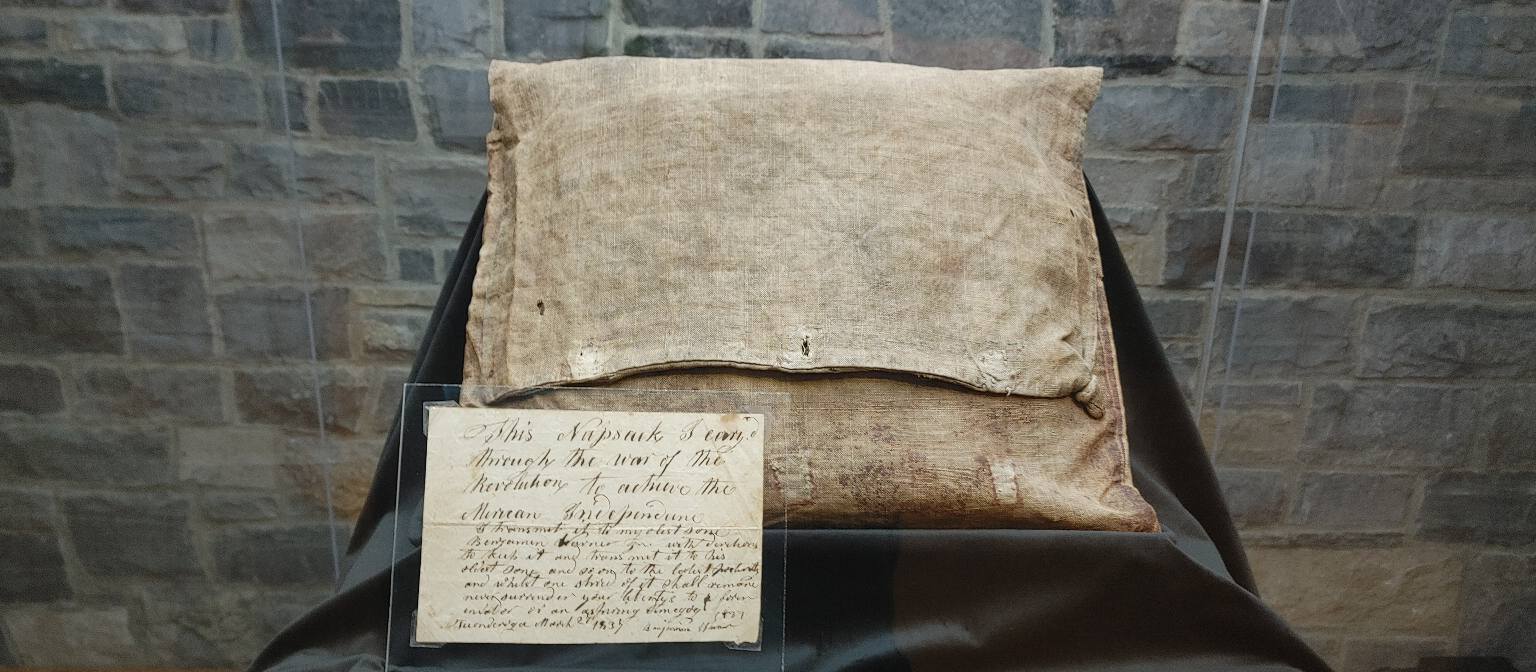 This Napsack I cary.d
through the war of the
Revolution to achieve the
Merican Independune
I transmit it to my olest sone
Benjamen Warner Jr with directions
to keep it and transmit it to his
oldest sone and so on to the latest posterity
and whilst one shred of it shall remane
never surrender your libertys to a foren
invador or an aspiring demegog
Ticonderoga March 27 1837 Benjamin Warner
1837